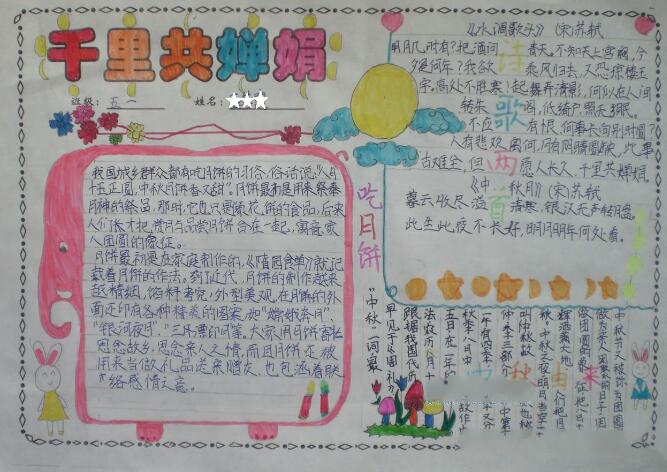 千里共婵娟
班级：五一 姓名：
《水调歌头》（宋）苏轼
明月几时有？把酒问青天。不知天上宫阙，今
夕是何年？我欲乘风归去，又恐琼楼玉
宇，高处不胜寒！起舞弄清影，何似在人间
转朱阁，低绮户，照无眠。
不应有恨，何事长向别时圆？
人有悲欢离合，月有阴晴圆缺，此事
古难全，但愿人长久，千里共婵娟。
《中秋月》（宋）苏轼
暮云收尽溢清寒，银汉无声转玉盘，
此生此夜不长好，明月明年何处看。
诗歌两首
吃月饼
我国城乡群众都有吃月饼的习俗，俗话说："八月
十五月正圆，中秋月饼香又甜"。月饼最初是用来祭奉
月神的祭品，那时，它也只是像菱花饼的食品，后来
人们才把赏月与品尝月饼合在一起，寓意家
人团圆的象征。
月饼最初是在家庭制作的，《随园食单》就记
载着月饼的作法。到了近代，月饼的制作越来
越精细，馅料考究，外型美观，在月饼的外
面还印有各种精美的图案，如"嫦娥奔月"、
"银河夜月"、"三潭印月"等。大家用月饼寄托
思念故乡，思念亲人之情，而且月饼还被
用来当做礼品送亲赠友，也包涵着联
络感情之意。
中秋由来
中秋节又被称为团圆
"中秋"一词，最
早见于《周礼》
跟据我国古代历
法，农历八月十
五日，在一年的
秋季，八月中